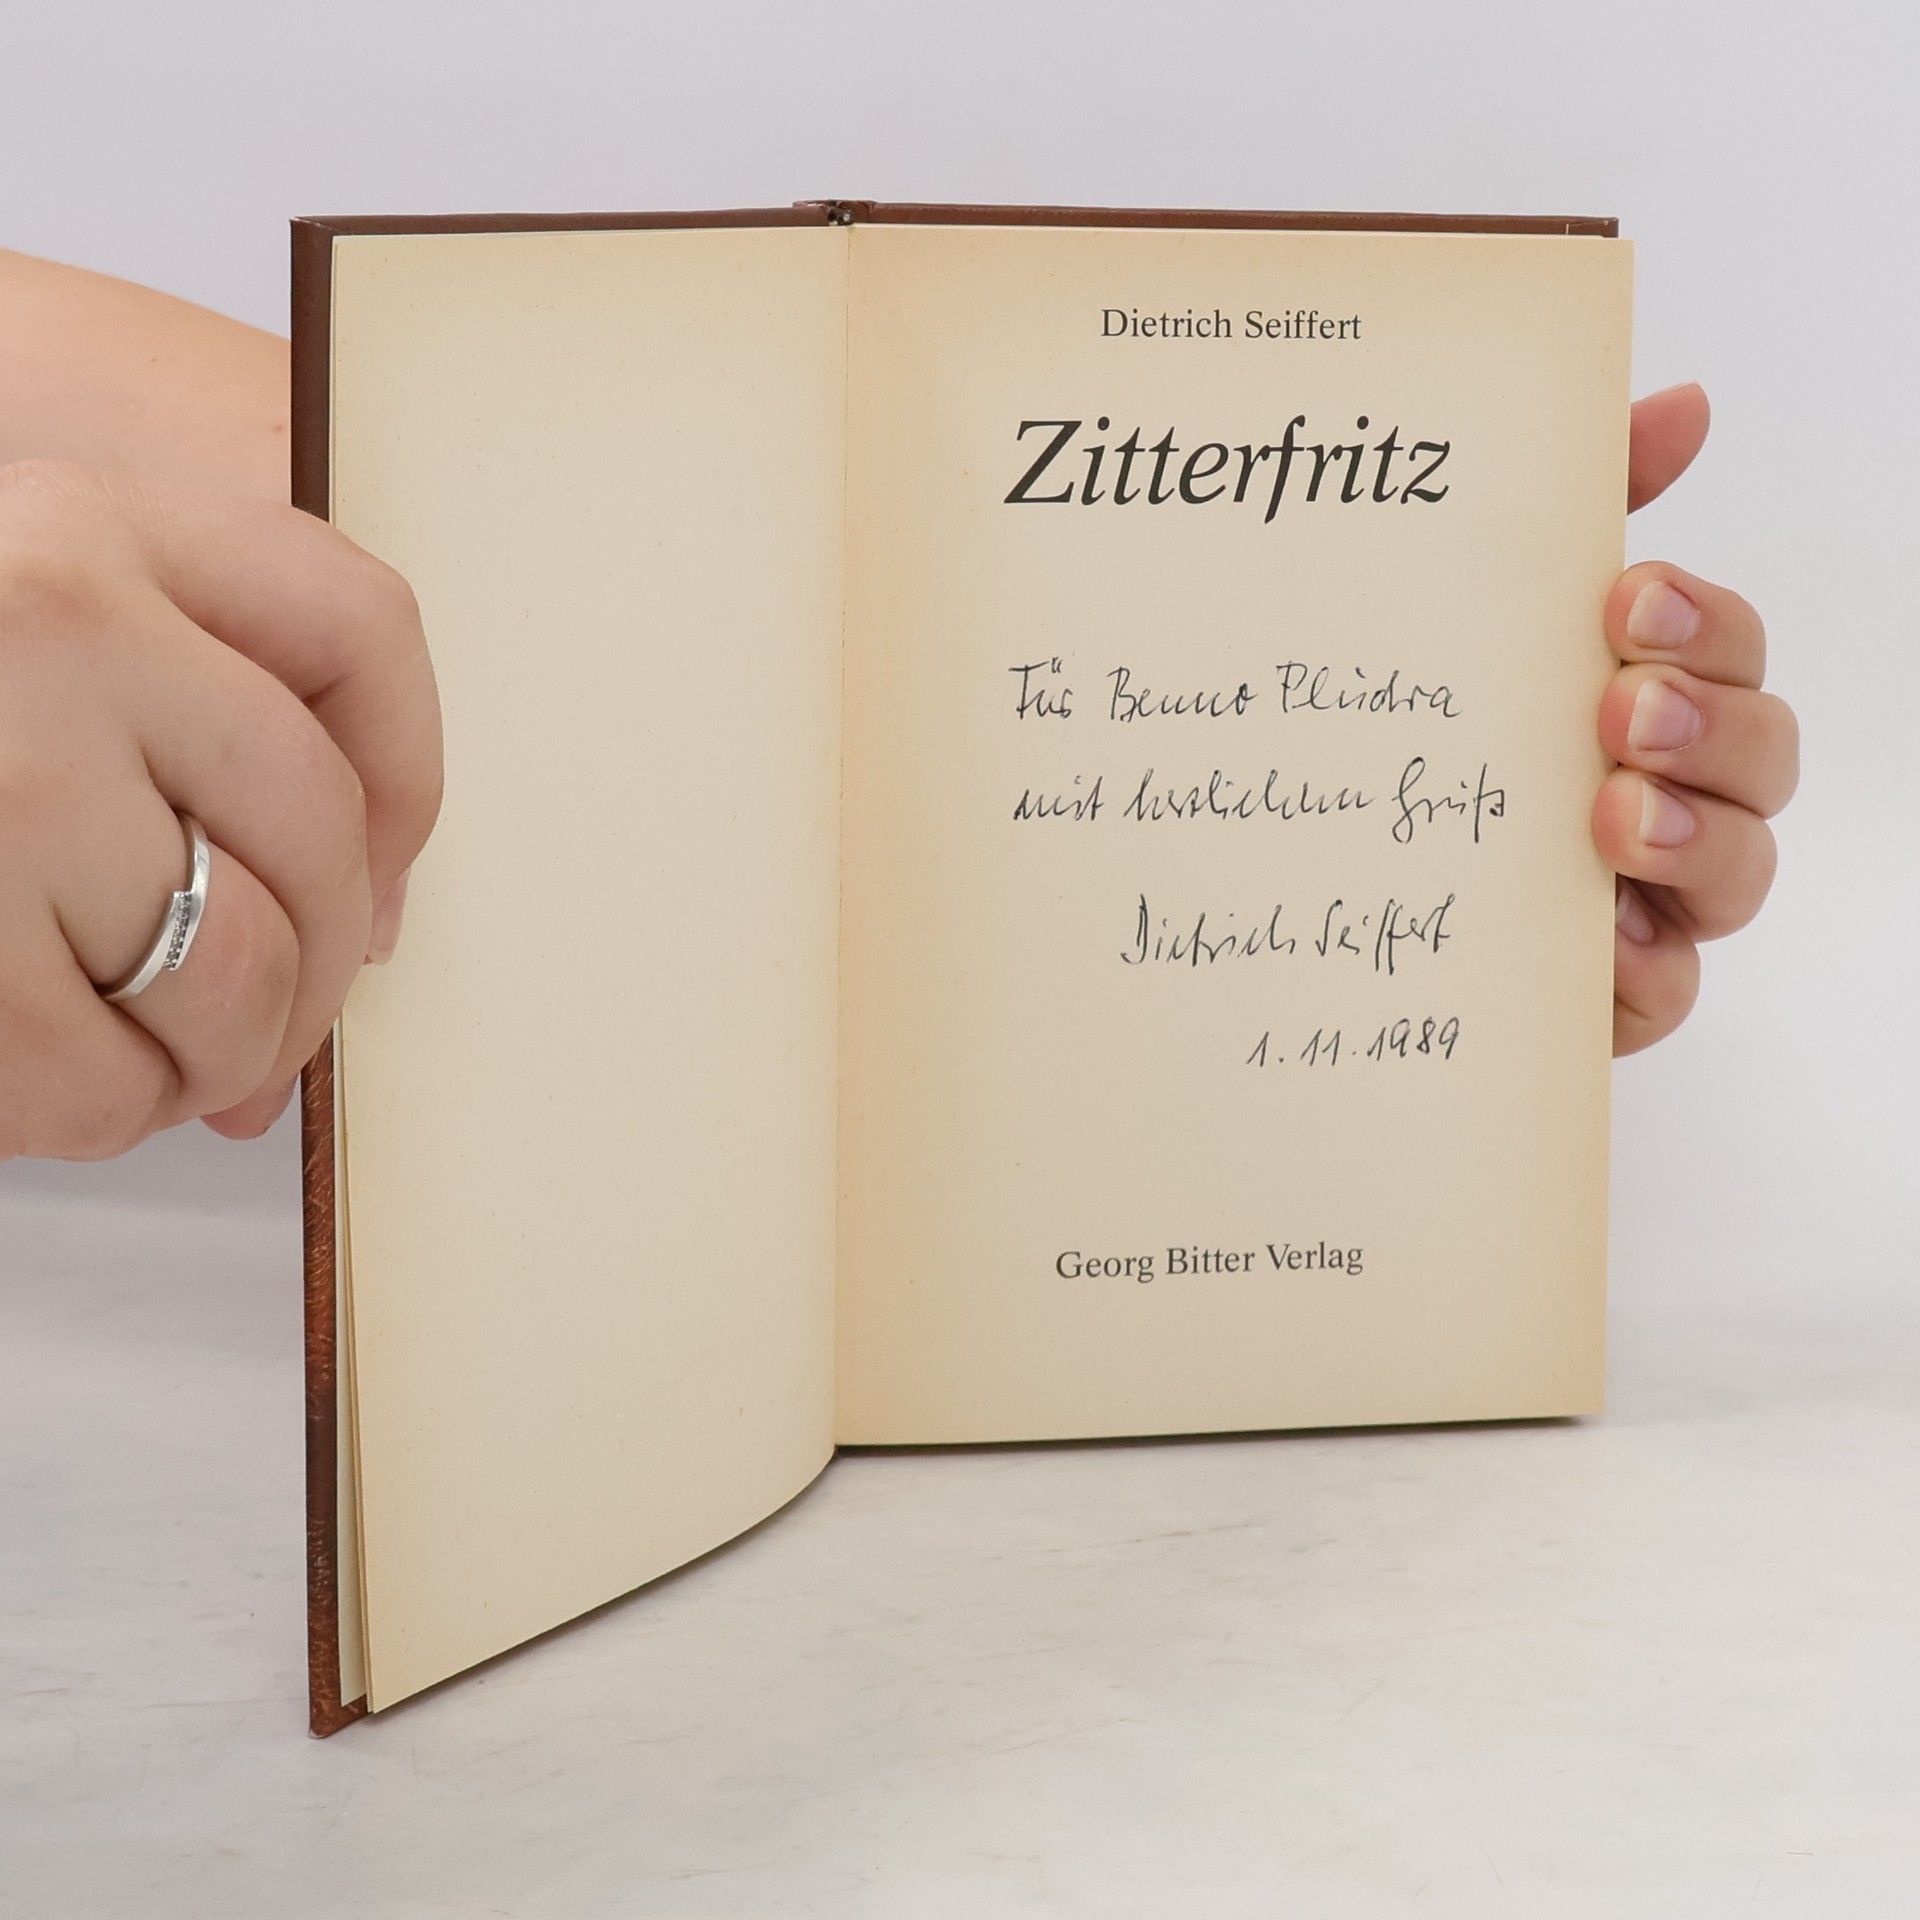 Dietrich Seiffert
Zitterfritz
Für Benno Pludra
mit herzlichem Gruß
Dietrich Seiffert
1.11.1989
Georg Bitter Verlag